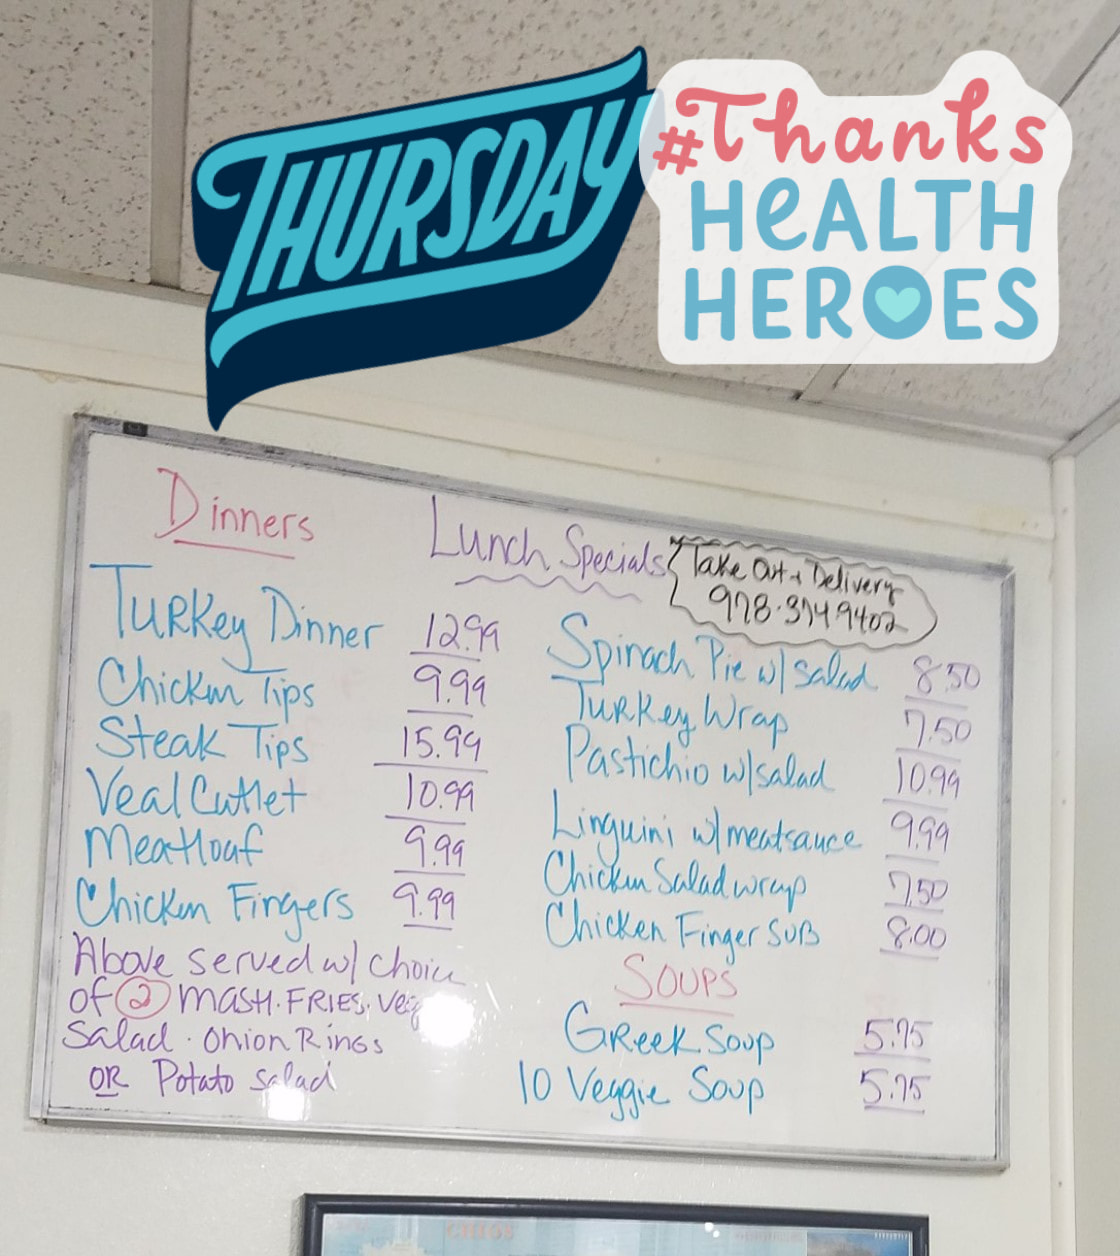 THURSDAY
#Thanks
HEALTH
HEROES
Dinners
Turkey Dinner 12.99
Chicken Tips 9.99
Steak Tips 15.99
Veal Cutlet 10.99
Meatloaf 9.99
Chicken Fingers 9.99
Above served w/ choice
of 2 MASH. FRIES, Veg
Salad. Onion Rings
OR Potato Salad
Lunch Specials
Take Out + Delivery
978.374 9402
Spinach Pie w/ Salad 8.50
Turkey Wrap 7.50
Pastichio w/ salad 10.99
Linguini w/ meatsauce 9.99
Chicken Salad wrap 7.50
Chicken Finger SUB 8.00
SOUPS
GReek Soup 5.75
10 Veggie Soup 5.75